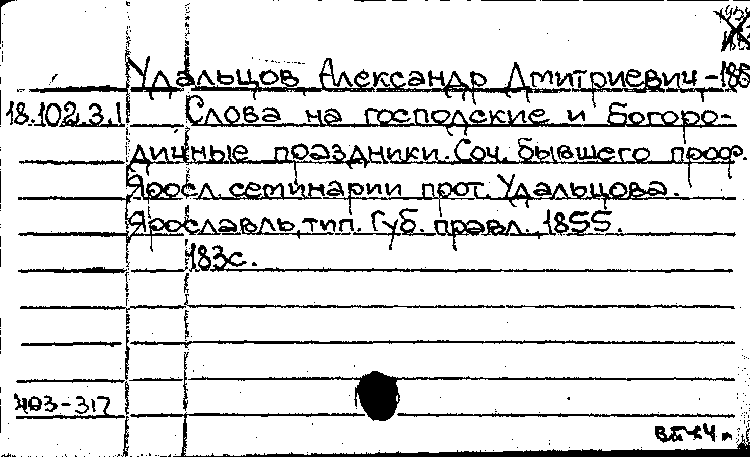 Удальцов, Александр Дмитриевич,-185
18.102.3.1 Слова на господские и Богоро-
дичные праздники. Соч. бывшего проф.
Яросл. семинарии прот. Удальцова.
Ярославль, тип. Губ. правл., 1855.
183с.
403-317